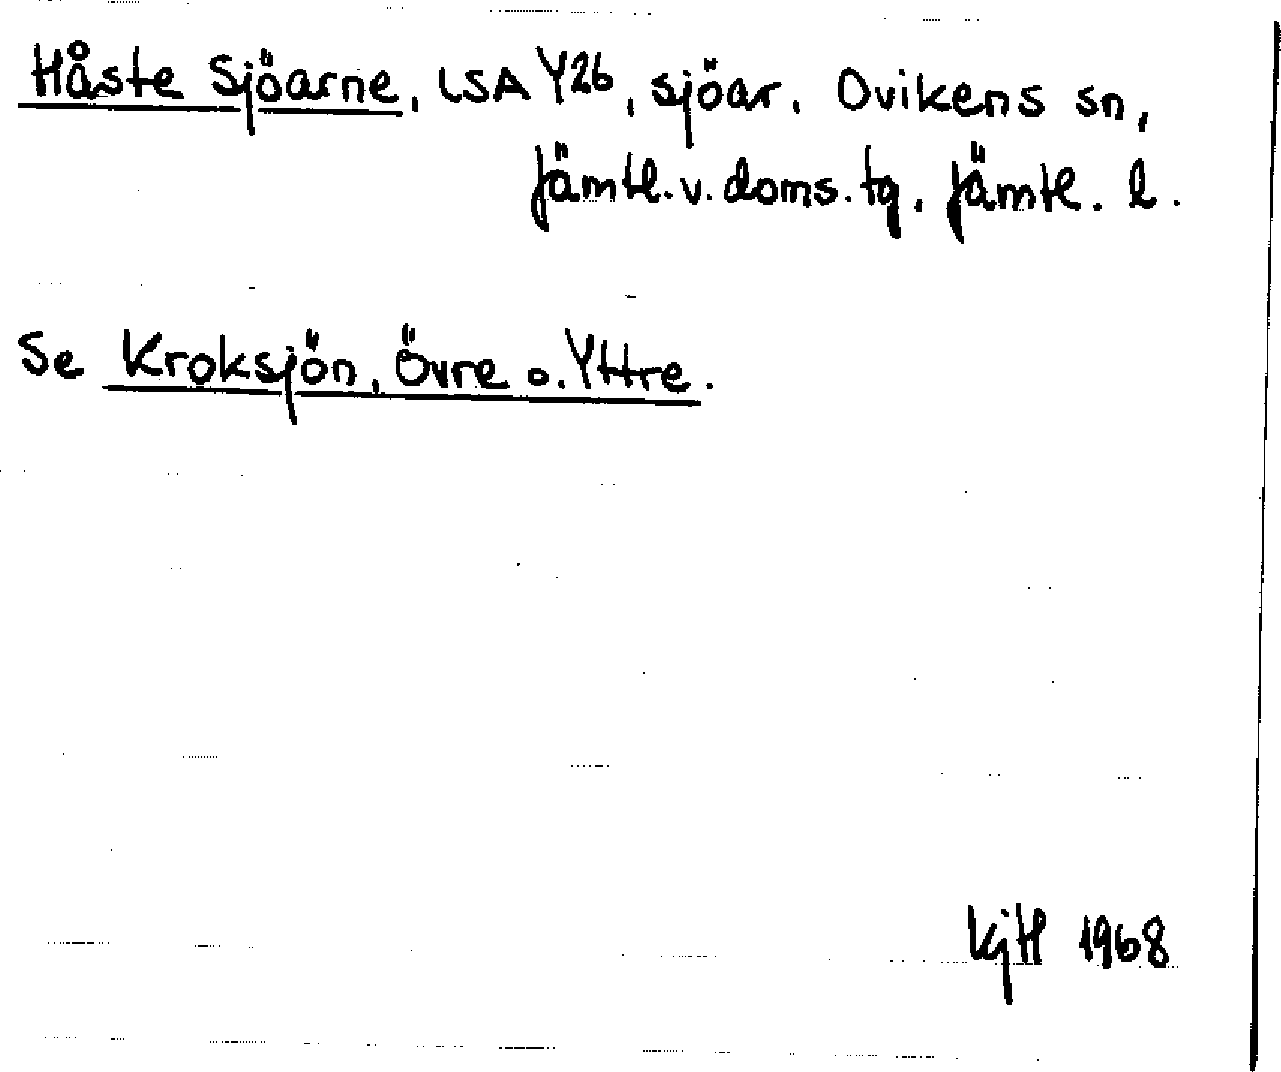 Håste Sjöarne, LSA Y26, sjöar. Ovikens sn,
Jämtl. v. doms. tg, Jämtl. l.
Se Kroksjön, Övre o. Yttre.
KjH 1968